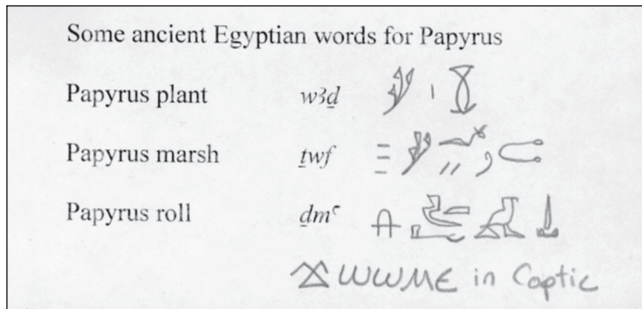 Some ancient Egyptian words for Papyrus
Papyrus plant wꜣḏ
Papyrus marsh ṯwf
Papyrus roll ḏmꜥ
ϫⲱⲱⲙⲉ in Coptic